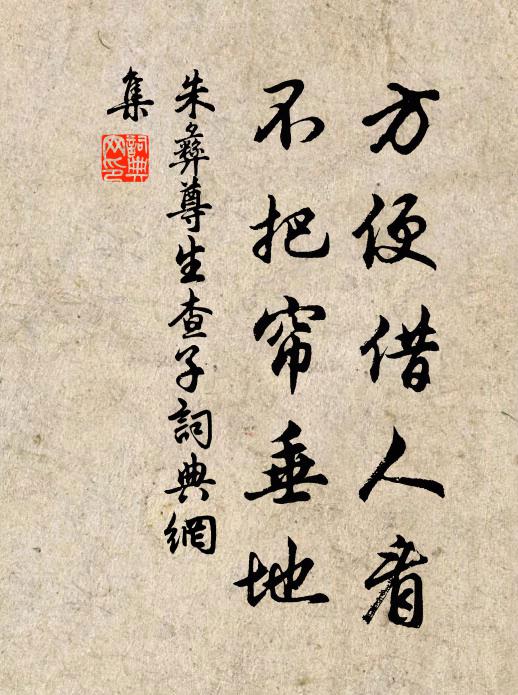 方便借人看
不把帘垂地
朱彝尊生查子詞典網
集
詞典
网印